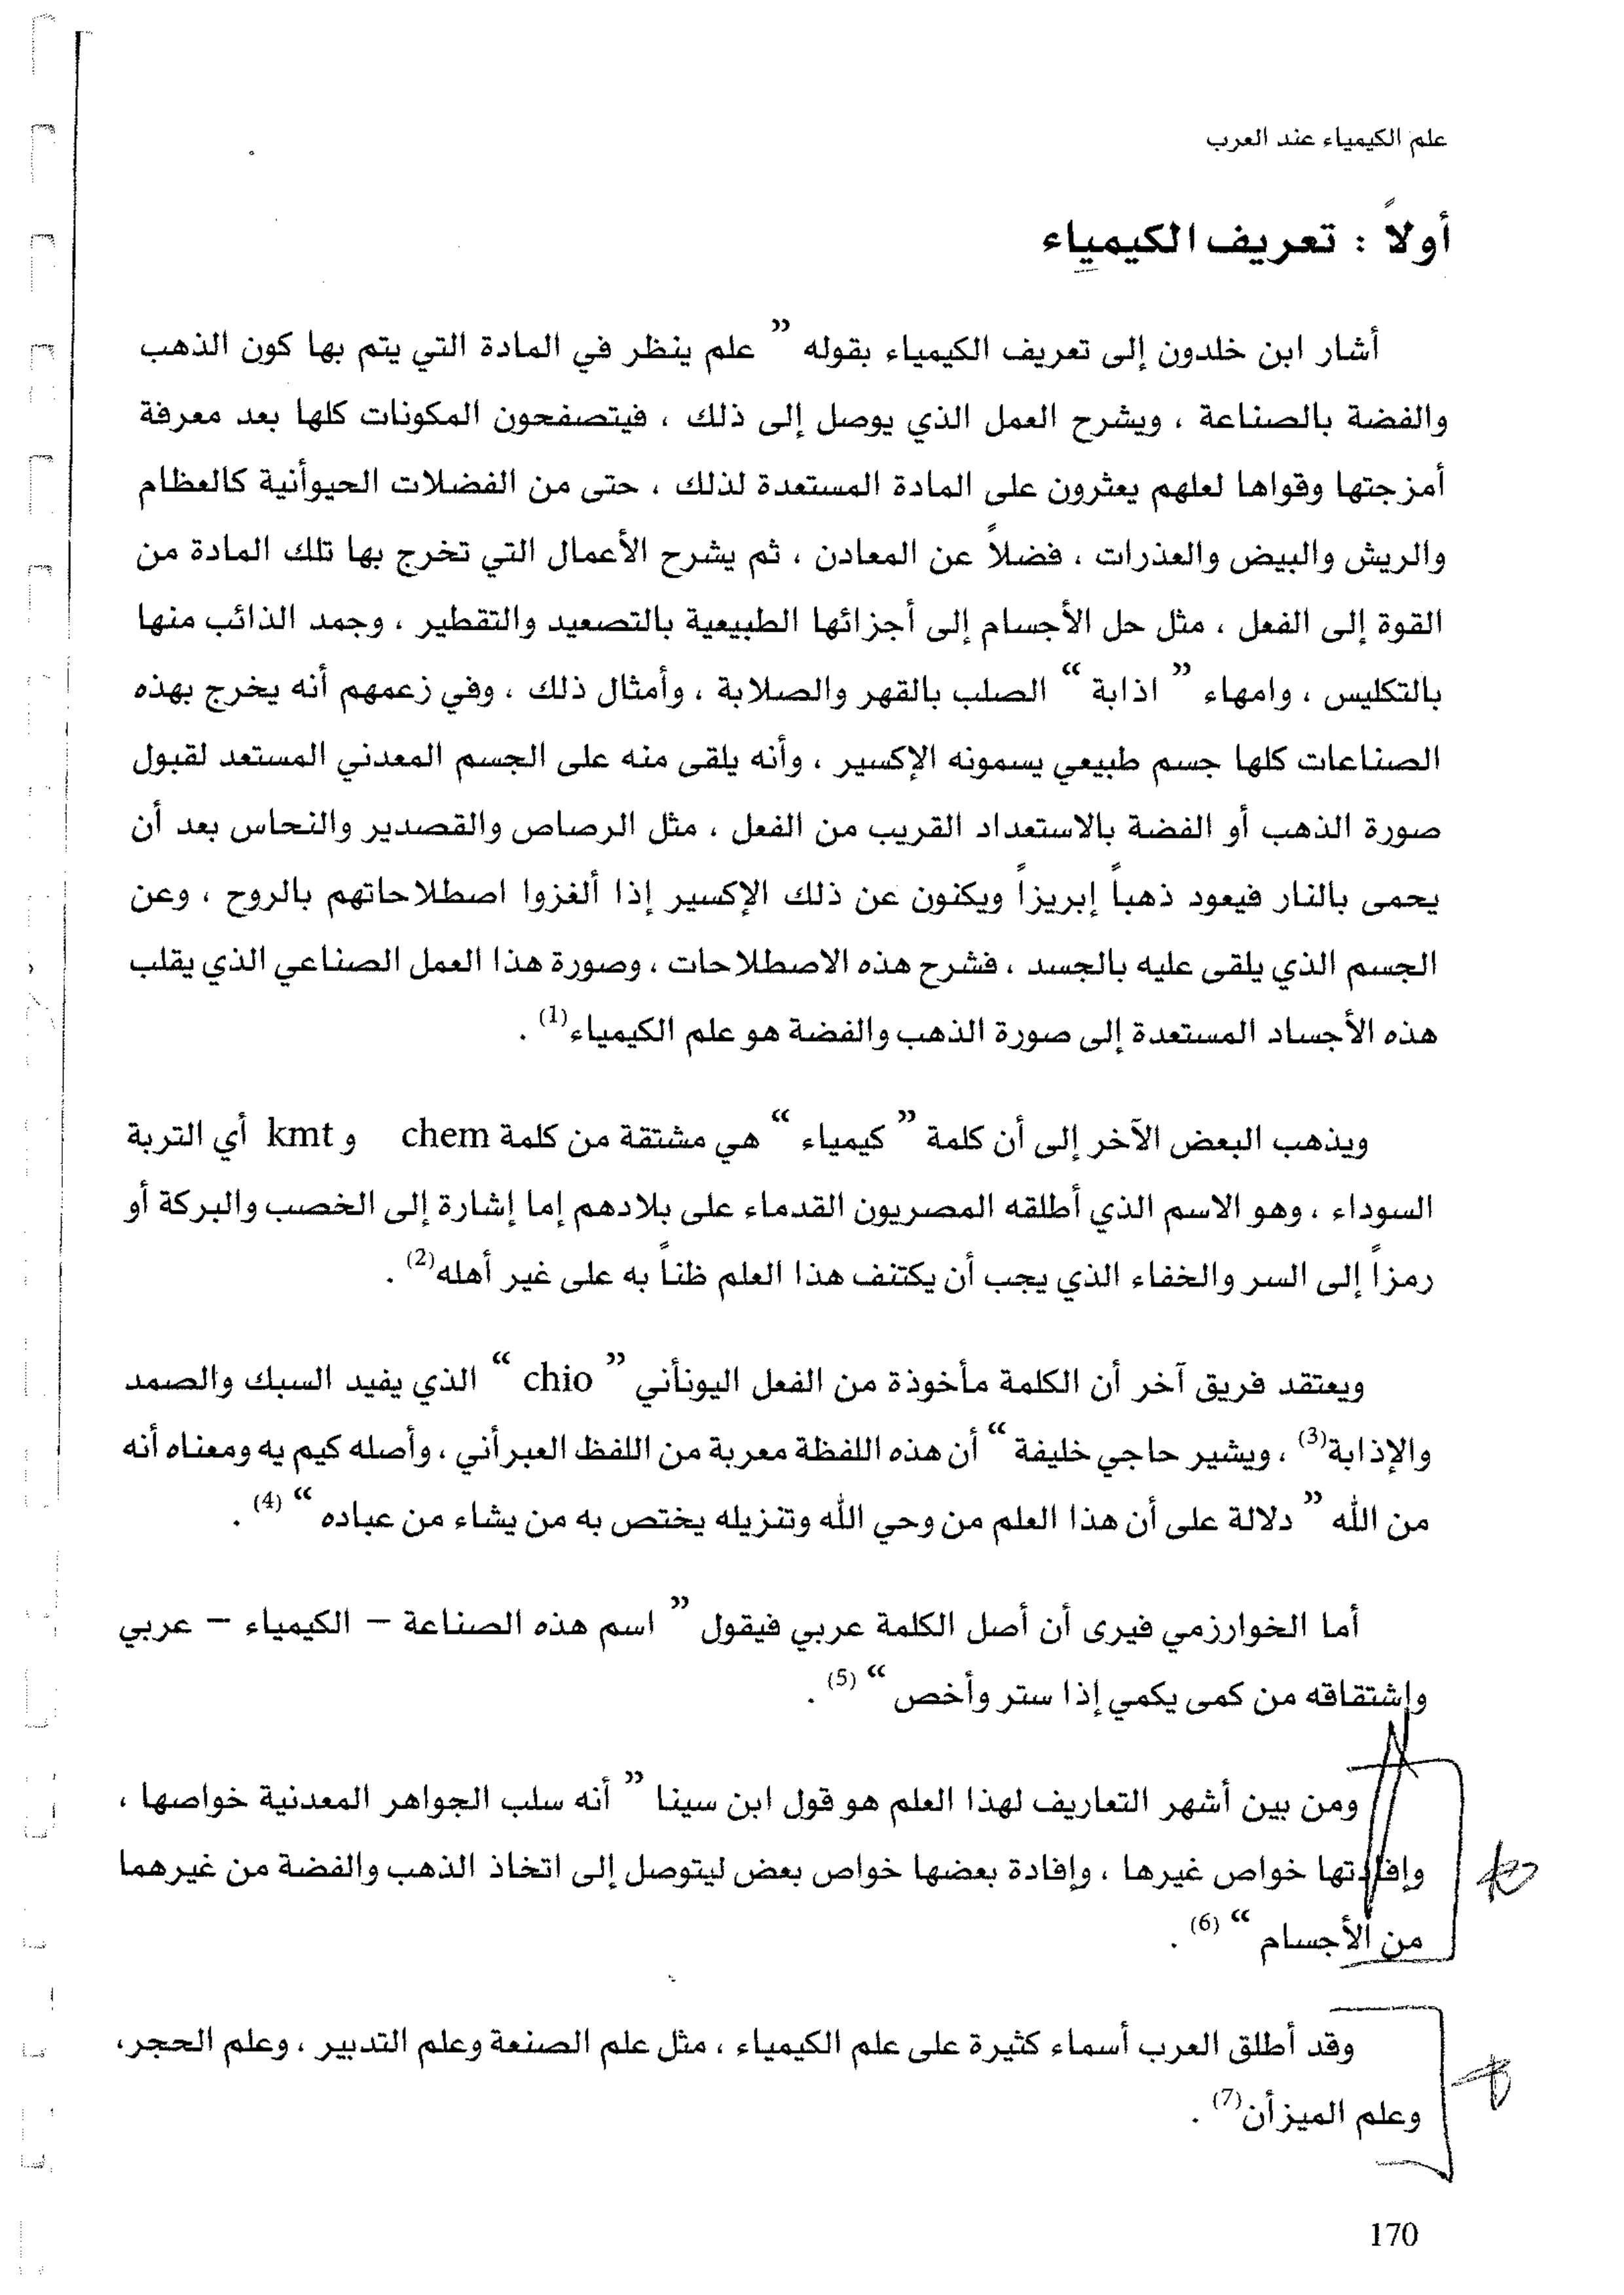 علم الكيمياء عند العرب
أولاً : تعريف الكيمياء
أشار ابن خلدون إلى تعريف الكيمياء بقوله ” علم ينظر في المادة التي يتم بها كون الذهب
والفضة بالصناعة ، ويشرح العمل الذي يوصل إلى ذلك ، فيتصفحون المكونات كلها بعد معرفة
أمزجتها وقواها لعلهم يعثرون على المادة المستعدة لذلك ، حتى من الفضلات الحيوأنية كالعظام
والريش والبيض والعذرات ، فضلاً عن المعادن ، ثم يشرح الأعمال التي تخرج بها تلك المادة من
القوة إلى الفعل ، مثل حل الأجسام إلى أجزائها الطبيعية بالتصعيد والتقطير ، وجمد الذائب منها
بالتكليس ، وامهاء ” اذابة “ الصلب بالقهر والصلابة ، وأمثال ذلك ، وفي زعمهم أنه يخرج بهذه
الصناعات كلها جسم طبيعي يسمونه الإكسير ، وأنه يلقى منه على الجسم المعدني المستعد لقبول
صورة الذهب أو الفضة بالاستعداد القريب من الفعل ، مثل الرصاص والقصدير والنحاس بعد أن
يحمى بالنار فيعود ذهباً إبريزاً ويكنون عن ذلك الإكسير إذا ألغزوا اصطلاحاتهم بالروح ، وعن
الجسم الذي يلقى عليه بالجسد ، فشرح هذه الاصطلاحات ، وصورة هذا العمل الصناعي الذي يقلب
هذه الأجساد المستعدة إلى صورة الذهب والفضة هو علم الكيمياء(1) .
ويذهب البعض الآخر إلى أن كلمة ” كيمياء “ هي مشتقة من كلمة chem و kmt أي التربة
السوداء ، وهو الاسم الذي أطلقه المصريون القدماء على بلادهم إما إشارة إلى الخصب والبركة أو
رمزاً إلى السر والخفاء الذي يجب أن يكتنف هذا العلم ظناً به على غير أهله(2) .
ويعتقد فريق آخر أن الكلمة مأخوذة من الفعل اليونأني ” chio “ الذي يفيد السبك والصمد
والإذابة(3) ، ويشير حاجي خليفة “ أن هذه اللفظة معربة من اللفظ العبرأني ، وأصله كيم يه ومعناه أنه
من الله ” دلالة على أن هذا العلم من وحي الله وتنزيله يختص به من يشاء من عباده “ (4) .
أما الخوارزمي فيرى أن أصل الكلمة عربي فيقول ” اسم هذه الصناعة – الكيمياء – عربي
وإشتقاقه من كمى يكمي إذا ستر وأخص “ (5) .
ومن بين أشهر التعاريف لهذا العلم هو قول ابن سينا ” أنه سلب الجواهر المعدنية خواصها ،
وإفادتها خواص غيرها ، وإفادة بعضها خواص بعض ليتوصل إلى اتخاذ الذهب والفضة من غيرهما
من الأجسام “ (6) .
وقد أطلق العرب أسماء كثيرة على علم الكيمياء ، مثل علم الصنعة وعلم التدبير ، وعلم الحجر،
وعلم الميزأن(7) .
170